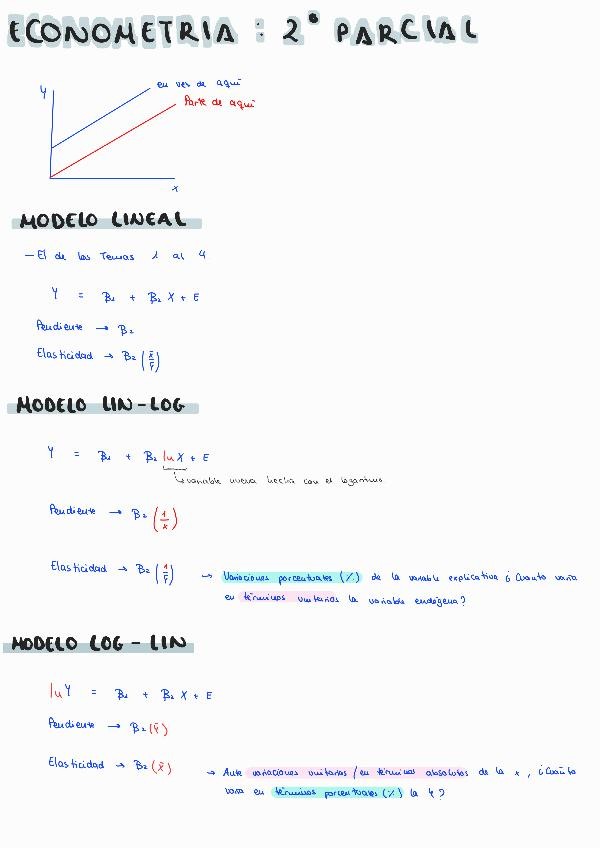 ECONOMETRIA : 2° PARCIAL
Y
en vez de aquí
Parte de aquí
x
MODELO LINEAL
— El de los Temas 1 al 4
Y = B₁ + B₂ X + E
Pendiente → B₂
Elasticidad → B₂ (x̄/ȳ)
MODELO LIN-LOG
Y = B₁ + B₂ ln X + E
↳ variable nueva hecha con el logaritmo
Pendiente → B₂ (1/x̄)
Elasticidad → B₂ (1/ȳ) → Variaciones porcentuales (%) de la variable explicativa ¿ Cuanto varia
en términos unitarios la variable endógena?
MODELO LOG - LIN
ln Y = B₁ + B₂ X + E
Pendiente → B₂ (ȳ)
Elasticidad → B₂ (x̄) → Ante variaciones unitarias / en términos absolutos de la x , ¿Cuánto
varia en términos porcentuales (%) la Y?